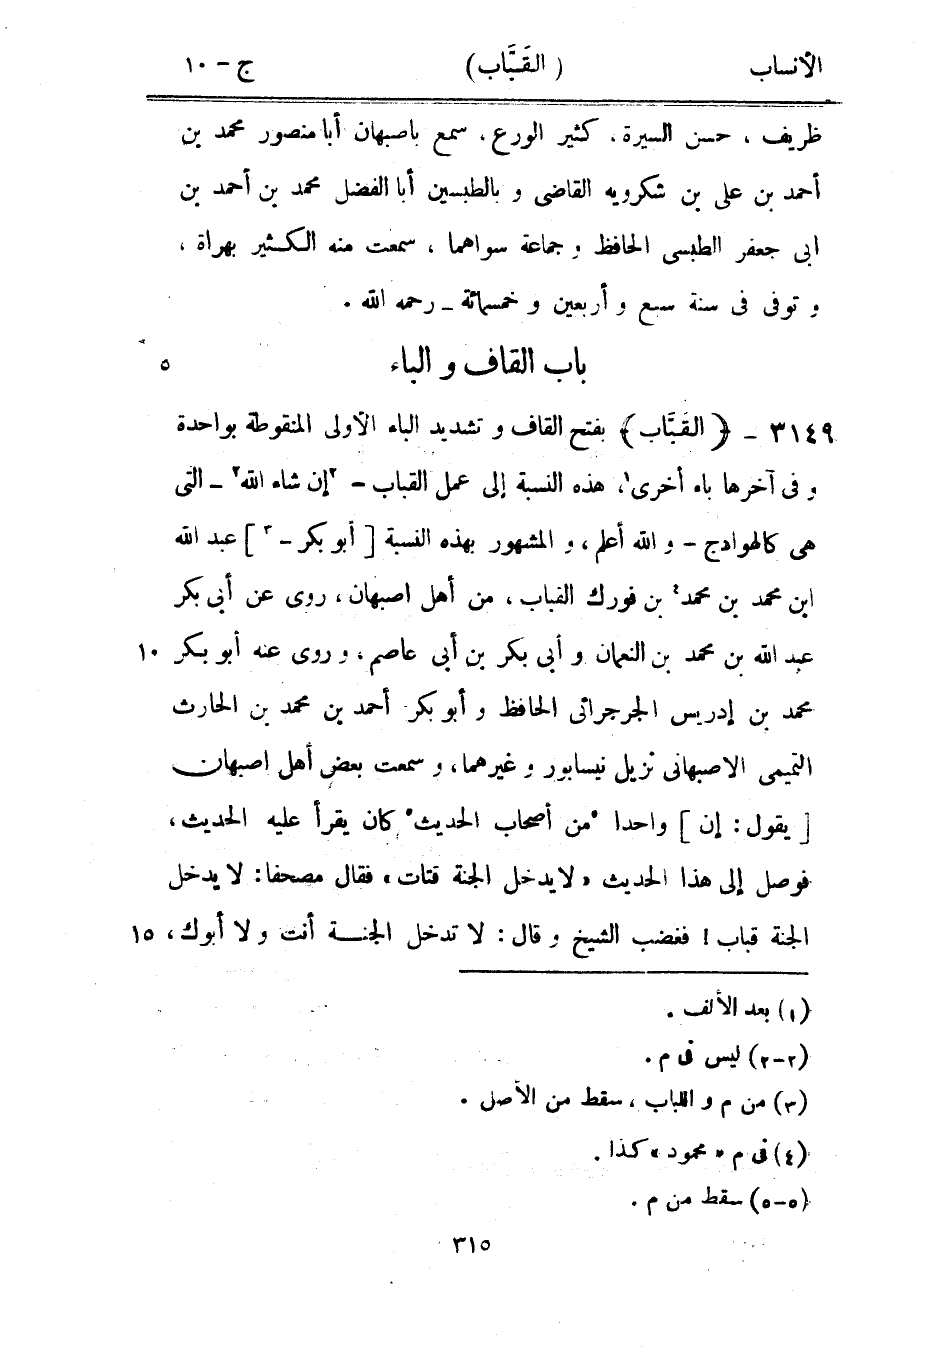 الأنساب (القَبَّاب) ج - ١٠
ظريف، حسن السيرة، كثير الورع، سمع باصبهان أبا منصور محمد بن
أحمد بن على بن شكرويه القاضى و بالطبسين أبا الفضل محمد بن أحمد بن
ابى جعفر الطبسى الحافظ و جماعة سواهما، سمعت منه الكثير بهراة،
و توفى فى سنة سبع و أربعين و خمسمائة ـ رحمه الله .
باب القاف و الباء ٥
٣١٤٩ ـ ﴿القَبَّاب﴾ بفتح القاف و تشديد الباء الأولى المنقوطة بواحدة
و فى آخرها باء أخرى١، هذه النسبة إلى عمل القباب - ٢إن شاء الله٢ ـ التى
هى كالهوادج - و الله أعلم، و المشهور بهذه النسبة [ أبو بكر ـ ٣ ] عبد الله
ابن محمد بن محمد٤ بن فورك القباب، من أهل اصبهان، روى عن أبى بكر
عبد الله بن محمد بن النعمان و أبى بكر بن أبى عاصم، و روى عنه أبو بكر ١٠
محمد بن إدريس الجرجرائى الحافظ و أبو بكر أحمد بن محمد بن الحارث
التميمى الاصبهانى نزيل نيسابور و غيرهما، و سمعت بعض أهل اصبهان
[ يقول: إن ] واحدا ٥من أصحاب الحديث٥ كان يقرأ عليه الحديث،
فوصل إلى هذا الحديث «لا يدخل الجنة قتات» فقال مصحفا: لا يدخل
الجنة قباب! فغضب الشيخ و قال: لا تدخل الجنــة أنت و لا أبوك، ١٥
(١) بعد الألف .
(٢-٢) ليس فى م .
(٣) من م و اللباب، سقط من الأصل .
(٤) فى م «محمود» كذا .
(٥-٥) سقط من م .
٣١٥